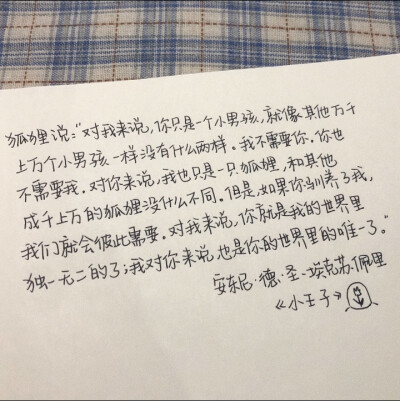 狐狸说:"对我来说,你只是一个小男孩,就像其他万千
上万个小男孩一样没有什么两样。我不需要你。你也
不需要我。对你来说,我也只是一只狐狸,和其他
成千上万的狐狸没什么不同。但是,如果你驯养了我,
我们就会彼此需要。对我来说,你就是我的世界里
独一无二的了;我对你来说,也是你的世界里的唯一了。"
安东尼·德·圣·埃克苏佩里
《小王子》